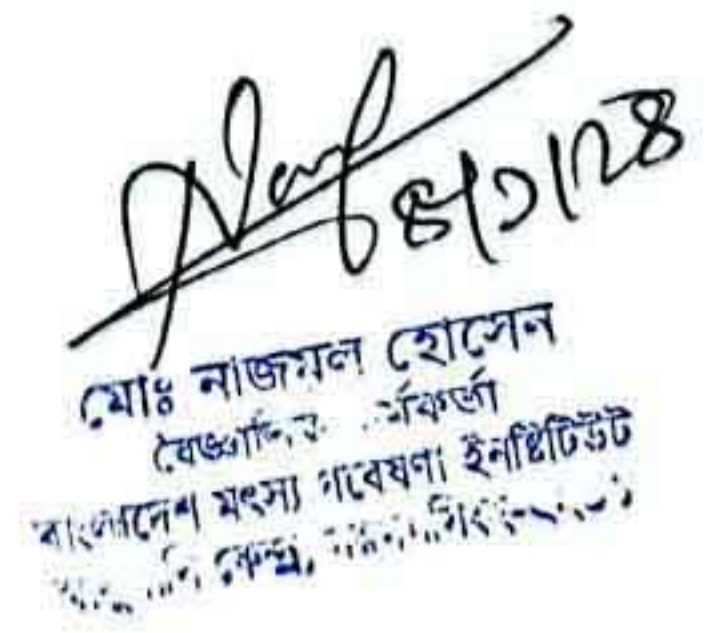 ৪/১/২৪
মোঃ নাজমুল হোসেন
বৈজ্ঞানিক কর্মকর্তা
বাংলাদেশ মৎস্য গবেষণা ইনষ্টিটিউট
কেন্দ্র,